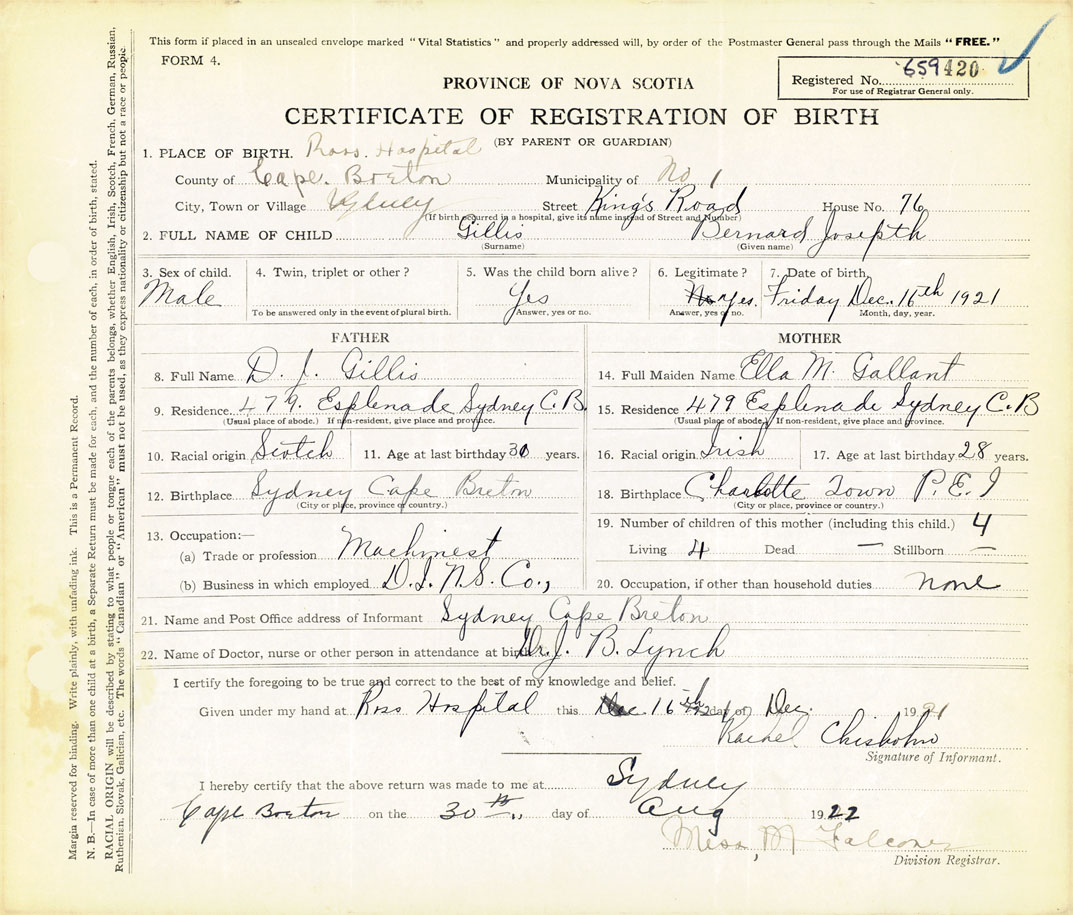 This form if placed in an unsealed envelope marked "Vital Statistics" and properly addressed will, by order of the Postmaster General pass through the Mails "FREE."
FORM 4.
Registered No. 659420
For use of Registrar General only.
PROVINCE OF NOVA SCOTIA
CERTIFICATE OF REGISTRATION OF BIRTH
(BY PARENT OR GUARDIAN)
1. PLACE OF BIRTH. Ross Hospital
County of Cape Breton Municipality of No 1
City, Town or Village Sydney Street King's Road House No. 76
(If birth occurred in a hospital, give its name instead of Street and Number)
2. FULL NAME OF CHILD Gillis Bernard Josepth
(Surname) (Given name)
3. Sex of child. 4. Twin, triplet or other? 5. Was the child born alive? 6. Legitimate? 7. Date of birth
Male Yes No Yes. Friday Dec. 16th 1921
To be answered only in the event of plural birth. Answer, yes or no. Answer, yes or no. Month, day, year.
FATHER
8. Full Name D. J. Gillis
9. Residence 479. Esplenade Sydney C.B.
(Usual place of abode.) If non-resident, give place and province.
10. Racial origin Scotch 11. Age at last birthday 30 years.
12. Birthplace Sydney Cape Breton
(City or place, province or country.)
13. Occupation:—
(a) Trade or profession Machinest
(b) Business in which employed D.I.N.S. Co.,
MOTHER
14. Full Maiden Name Ella M. Gallant
15. Residence 479 Esplenade Sydney C.B
(Usual place of abode.) If non-resident, give place and province.
16. Racial origin Irish 17. Age at last birthday 28 years.
18. Birthplace Charlotte Town P.E.I
(City or place, province or country.)
19. Number of children of this mother (including this child.) 4
Living 4 Dead — Stillborn —
20. Occupation, if other than household duties none
21. Name and Post Office address of Informant Sydney Cape Breton
22. Name of Doctor, nurse or other person in attendance at birth Dr. J. B. Lynch
I certify the foregoing to be true and correct to the best of my knowledge and belief.
Given under my hand at Ross Hospital this Dec 16th day of Dec. 1921
Rachel Chisholm
Signature of Informant.
I hereby certify that the above return was made to me at Sydney
Cape Breton on the 30th day of Aug 1922
Miss, M Falconer
Division Registrar.
Margin reserved for binding. Write plainly, with unfading ink. This is a Permanent Record.
N. B.—In case of more than one child at a birth, a Separate Return must be made for each, and the number of each, in order of birth, stated.
RACIAL ORIGIN will be described by stating to what people or tongue each of the parents belongs, whether English, Irish, Scotch, French, German, Russian,
Ruthenian, Slovak, Galician, etc. The words "Canadian" or "American" must not be used, as they express nationality or citizenship but not a race or people.